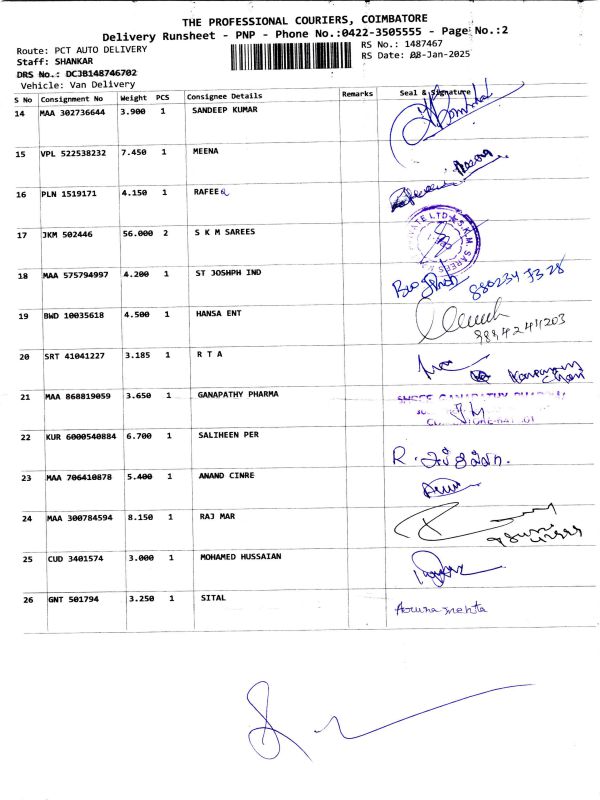 THE PROFESSIONAL COURIERS, COIMBATORE
Delivery Runsheet - PNP - Phone No.:0422-3505555 - Page No.:2
Route: PCT AUTO DELIVERY
RS No.: 1487467
Staff: SHANKAR
RS Date: 08-Jan-2025
DRS No.: DCJB148746702
Vehicle: Van Delivery
S No Consignment No Weight PCS Consignee Details Remarks Seal & Signature
14 MAA 302736644 3.900 1 SANDEEP KUMAR
15 VPL 522538232 7.450 1 MEENA
16 PLN 1519171 4.150 1 RAFEEQ
17 JKM 502446 56.000 2 S K M SAREES
18 MAA 575794997 4.200 1 ST JOSHPH IND
19 BWD 10035618 4.500 1 HANSA ENT
20 SRT 41041227 3.185 1 R T A
21 MAA 868819059 3.650 1 GANAPATHY PHARMA
22 KUR 6000540884 6.700 1 SALIHEEN PER
23 MAA 706410878 5.400 1 ANAND CINRE
24 MAA 300784594 8.150 1 RAJ MAR
25 CUD 3401574 3.000 1 MOHAMED HUSSAIAN
26 GNT 501794 3.250 1 SITAL
Aruna mehta